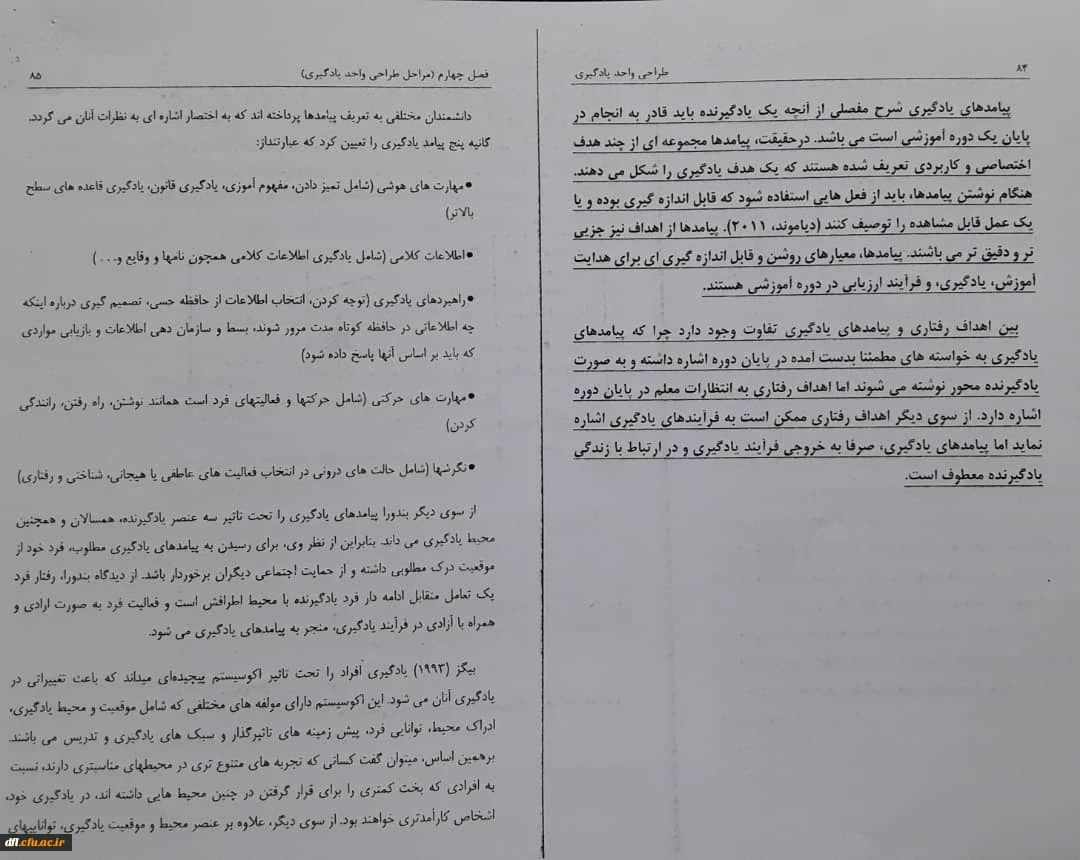 ۸۴
طراحی واحد یادگیری
پیامدهای یادگیری شرح مفصلی از آنچه یک یادگیرنده باید قادر به انجام در
پایان یک دوره آموزشی است می باشد. درحقیقت، پیامدها مجموعه ای از چند هدف
اختصاصی و کاربردی تعریف شده هستند که یک هدف یادگیری را شکل می دهند.
هنگام نوشتن پیامدها، باید از فعل هایی استفاده شود که قابل اندازه گیری بوده و یا
یک عمل قابل مشاهده را توصیف کنند (دیاموند، ۲۰۱۱). پیامدها از اهداف نیز جزیی
تر و دقیق تر می باشند. پیامدها، معیارهای روشن و قابل اندازه گیری ای برای هدایت
آموزش، یادگیری، و فرآیند ارزیابی در دوره آموزشی هستند.
بین اهداف رفتاری و پیامدهای یادگیری تفاوت وجود دارد چرا که پیامدهای
یادگیری به خواسته های مطمئنا بدست آمده در پایان دوره اشاره داشته و به صورت
یادگیرنده محور نوشته می شوند اما اهداف رفتاری به انتظارات معلم در پایان دوره
اشاره دارد. از سوی دیگر اهداف رفتاری ممکن است به فرآیندهای یادگیری اشاره
نماید اما پیامدهای یادگیری، صرفا به خروجی فرآیند یادگیری و در ارتباط با زندگی
یادگیرنده معطوف است.
فصل چهارم (مراحل طراحی واحد یادگیری)
۸۵
دانشمندان مختلفی به تعریف پیامدها پرداخته اند که به اختصار اشاره ای به نظرات آنان می گردد.
گانیه پنج پیامد یادگیری را تعیین کرد که عبارتنداز:
●مهارت های هوشی (شامل تمیز دادن، مفهوم آموزی، یادگیری قانون، یادگیری قاعده های سطح
بالاتر)
●اطلاعات کلامی (شامل یادگیری اطلاعات کلامی همچون نامها و وقایع و. . . )
●راهبردهای یادگیری (توجه کردن، انتخاب اطلاعات از حافظه حسی، تصمیم گیری درباره اینکه
چه اطلاعاتی در حافظه کوتاه مدت مرور شوند، بسط و سازمان دهی اطلاعات و بازیابی مواردی
که باید بر اساس آنها پاسخ داده شود)
●مهارت های حرکتی (شامل حرکتها و فعالیتهای فرد است همانند نوشتن، راه رفتن، رانندگی
کردن)
●نگرشها (شامل حالت های درونی در انتخاب فعالیت های عاطفی یا هیجانی، شناختی و رفتاری)
از سوی دیگر بندورا پیامدهای یادگیری را تحت تاثیر سه عنصر یادگیرنده، همسالان و همچنین
محیط یادگیری می داند. بنابراین از نظر وی، برای رسیدن به پیامدهای یادگیری مطلوب، فرد خود از
موقعیت درک مطلوبی داشته و از حمایت اجتماعی دیگران برخوردار باشد. از دیدگاه بندورا، رفتار فرد
یک تعامل متقابل ادامه دار فرد یادگیرنده با محیط اطرافش است و فعالیت فرد به صورت ارادی و
همراه با آزادی در فرآیند یادگیری، منجر به پیامدهای یادگیری می شود.
بیگز (۱۹۹۳) یادگیری افراد را تحت تاثیر اکوسیستم پیچیده‌ای میداند که باعث تغییراتی در
یادگیری آنان می شود. این اکوسیستم دارای مولفه های مختلفی که شامل موقعیت و محیط یادگیری،
ادراک محیط، توانایی فرد، پیش زمینه های تاثیرگذار و سبک های یادگیری و تدریس می باشند.
برهمین اساس، میتوان گفت کسانی که تجربه های متنوع تری در محیطهای مناسبتری دارند، نسبت
به افرادی که بخت کمتری را برای قرار گرفتن در چنین محیط هایی داشته اند، در یادگیری خود،
اشخاص کارآمدتری خواهند بود. از سوی دیگر، علاوه بر عنصر محیط و موقعیت یادگیری، تواناییهای
dfl.cfu.ac.ir